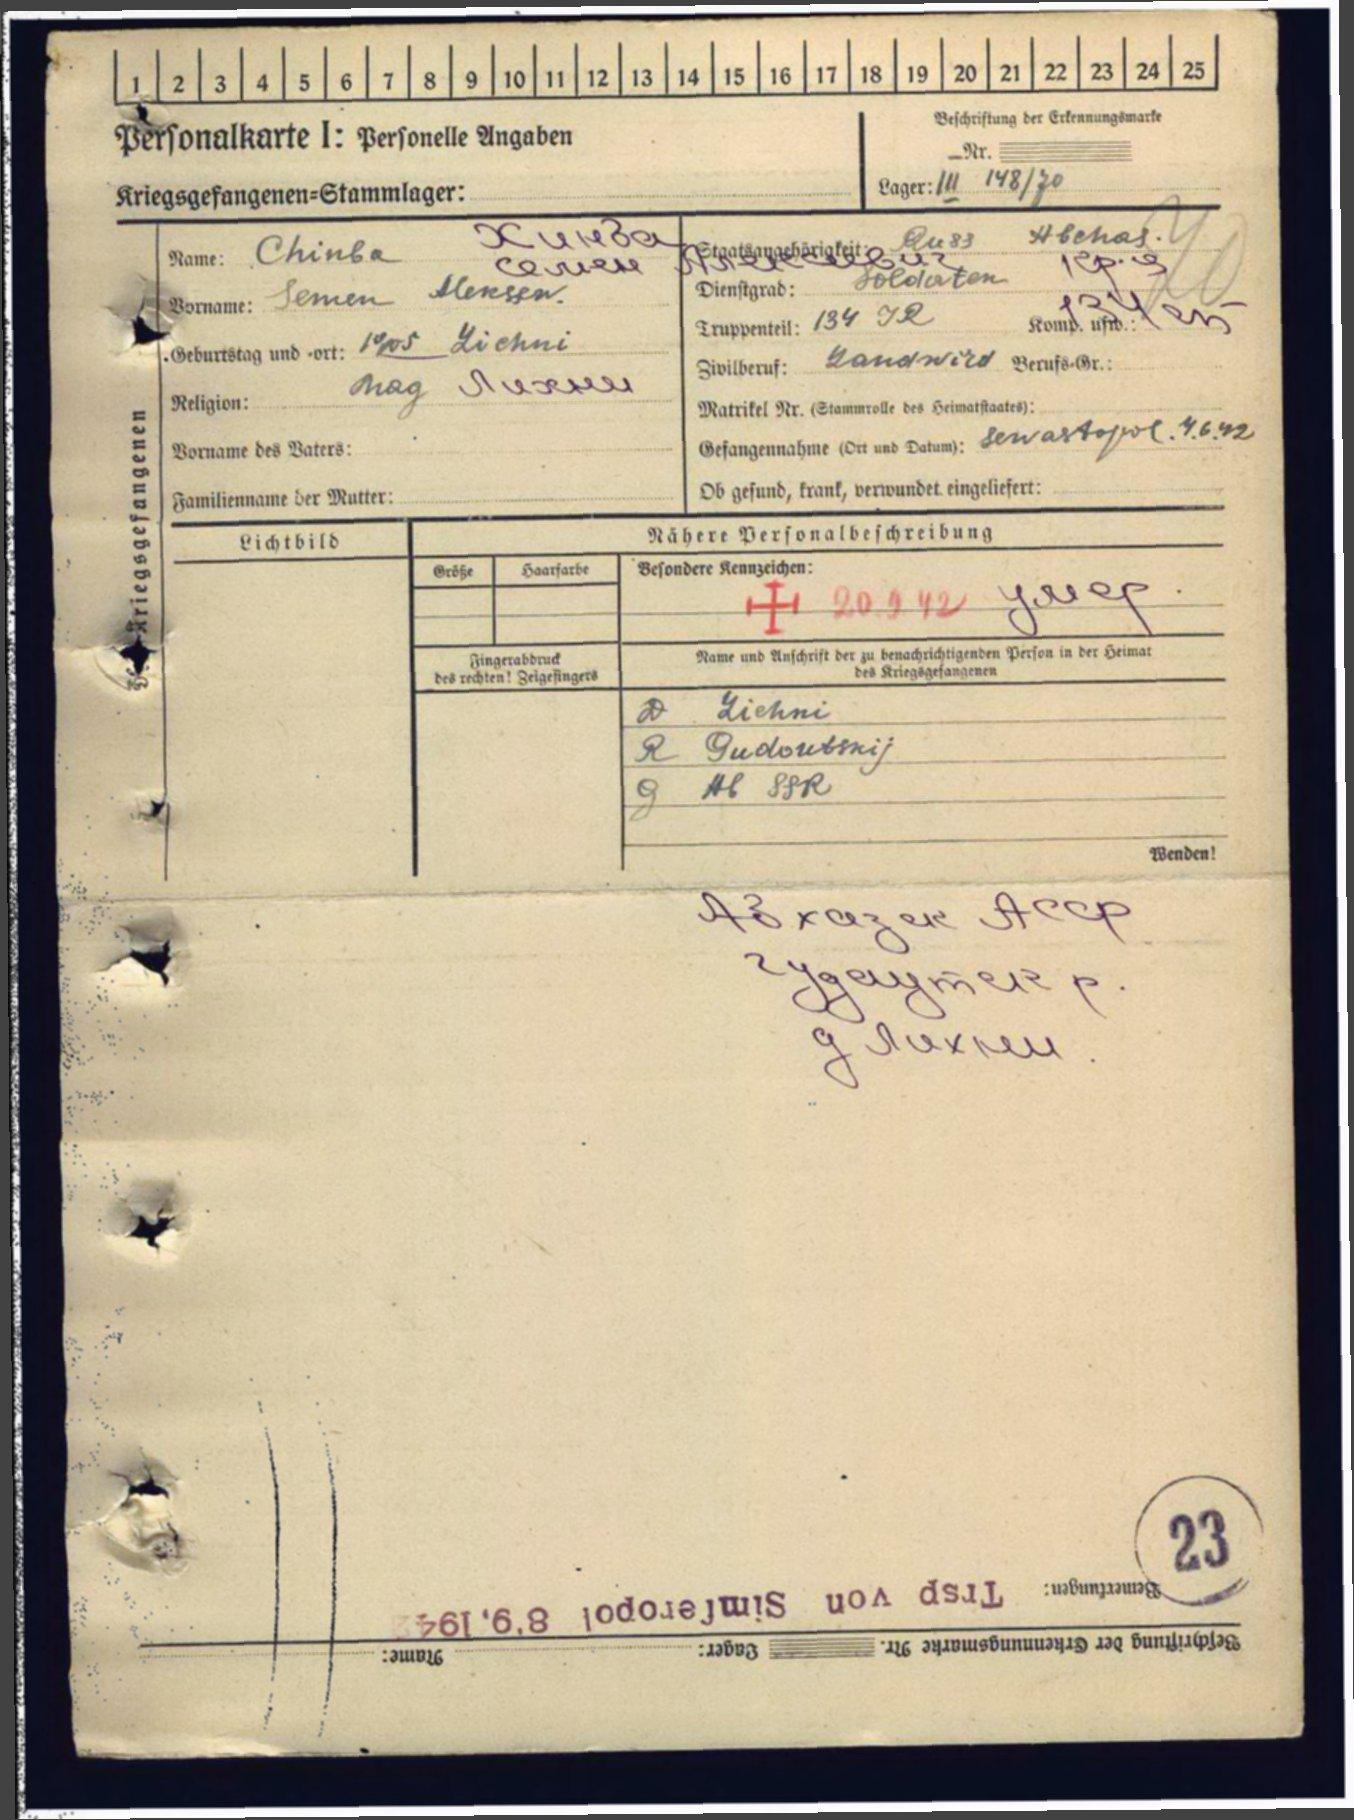 1 2 3 4 5 6 7 8 9 10 11 12 13 14 15 16 17 18 19 20 21 22 23 24 25
Personalkarte I: Personelle Angaben
Beschriftung der Erkennungsmarke
Nr.
Kriegsgefangenen=Stammlager:
Lager: III 148/70
Des Kriegsgefangenen
Name: Chinba Хинба
Семен Алексеевич
Vorname: Semen Aleksen.
Geburtstag und =ort: 1905 Lichni
Religion: Лихни
Vorname des Vaters:
Familienname der Mutter:
Staatsangehörigkeit: Russ Abchas.
Dienstgrad: Soldaten кр-ц
Truppenteil: 134 IR Komp. usw.: 134
Zivilberuf: Landwird Berufs=Gr.:
Matrikel Nr. (Stammrolle des Heimatstaates):
Gefangennahme (Ort und Datum): Sewastopol. 4.6.42
Ob gesund, krank, verwundet eingeliefert:
Lichtbild
Nähere Personalbeschreibung
Größe
Haarfarbe
Besondere Kennzeichen:
20.9.42 умер
Fingerabdruck
des rechten! Zeigefingers
Name und Anschrift der zu benachrichtigenden Person in der Heimat
des Kriegsgefangenen
D Lichni
R Gudoutskij
G Ab SSR
Wenden!
Абхазск АССР
Гудаутск р.
д Лихни.
23
Bemerkungen: Trsp von Simferopol 8.9.1942
Beschriftung der Erkennungsmarke Nr. Lager: Name: